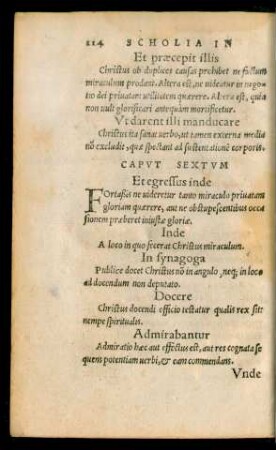 114 SCHOLIA IN
Et præcepit illis
Christus ob duplices causas prohibet ne factum
miraculum prodant. Altera est, ne uideatur in nego
tio dei priuatam utilitatem quærere. Altera est, quia
non vult glorificari antequàm mortificetur.
Vt darent illi manducare
Christus ita sanat uerbo, ut tamen externa media
nõ excludit, quæ spectant ad sustentationẽ corporis.
CAPVT SEXTVM
Et egressus inde
Fortaßis ne uideretur tanto miraculo priuatam
gloriam quærere, aut ne obstupescentibus occa
sionem præberet iniustæ gloriæ.
Inde
A loco in quo fecerat Christus miraculum.
In synagoga
Publice docet Christus nõ in angulo, neq; in loco
ad docendum non deputato.
Docere
Christus docendi officio testatur qualis rex sit:
nempe spiritualis.
Admirabantur
Admiratio hæc aut effectus est, aut res cognata se
quens potentiam uerbi, & eam commendans.
Vnde